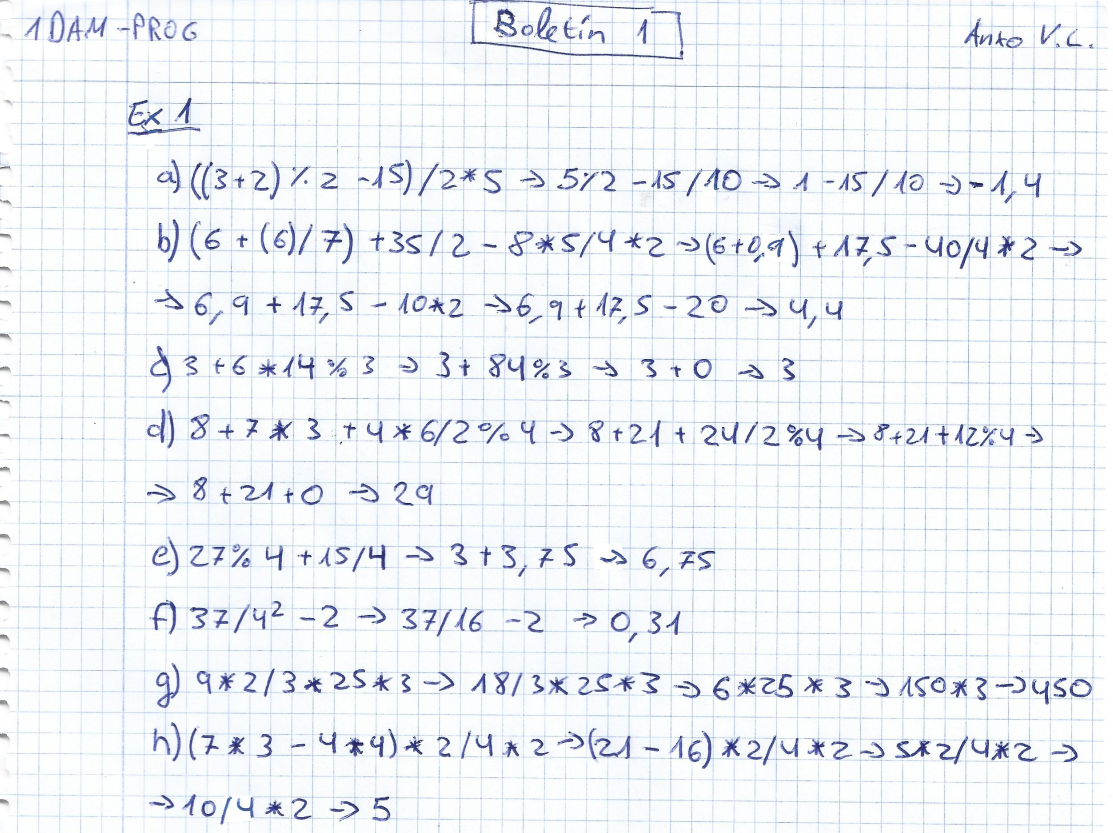 1DAM-PROG
Boletín 1
Anxo V.C.
Ex 1
a) ((3+2) % 2 -15) /2*5 → 5%2 -15/10 → 1 -15/10 → -1,4
b) (6 + (6)/7) +35/2 - 8*5/4*2 → (6+0,9) + 17,5 - 40/4*2 →
→ 6,9 + 17,5 - 10*2 → 6,9 + 17,5 - 20 → 4,4
c) 3 +6 *14%3 → 3+ 84%3 → 3+0 → 3
d) 8+7*3 +4*6/2%4 → 8+21 + 24/2%4 → 8+21+12%4 →
→ 8+21+0 → 29
e) 27%4 +15/4 → 3+3,75 → 6,75
f) 37/4² -2 → 37/16 -2 → 0,31
g) 9*2/3*25*3 → 18/3*25*3 → 6*25*3 → 150*3 → 450
h) (7*3 - 4*4) * 2/4*2 → (21 - 16) *2/4*2 → 5*2/4*2 →
→ 10/4*2 → 5